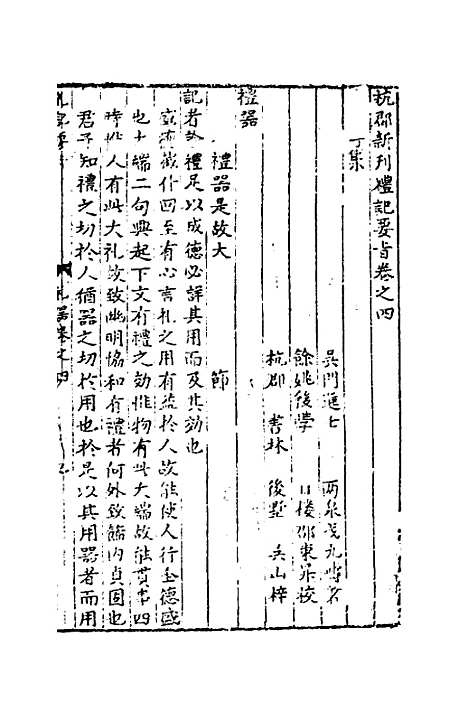 杭郡新刊禮記要旨卷之四
丁集
吳門進士 兩泉戈九疇
餘姚後學 樓邵東昇校
杭郡 書林 後墅 吳山梓
禮器
禮器是故大 節
記者 禮足以成德必詳其用而及其効也
截什回至有心言礼之用有益於人故能使人行全德盛
也大端二句與起下文有禮之効惟物有此大端故能貫事四
時惟人有此大礼故致幽明協和有禮者何外致篩内貞固也
君子知禮之切於人猶器之切於用也於是以其用器者而用
礼器卷之四